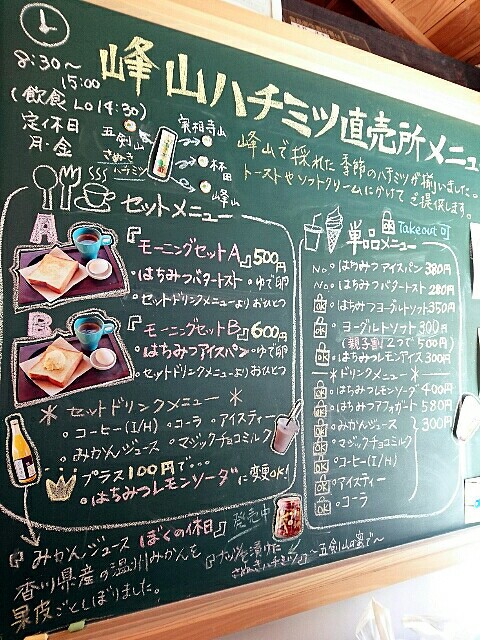 峰山ハチミツ直売所メニュ
8:30〜
15:00
(飲食 LO14:30)
定休日
月・金
五剣山
さぬき
ハチミツ
実相寺山
林田
峰山
峰山で採れた季節のハチミツが揃いました。
トーストやソフトクリームにかけてご提供します。
セットメニュー
A
『モーニングセットA』500円
・はちみつバタートスト・ゆで卵
・セットドリンクメニューよりおひとつ
B
『モーニングセットB』600円
・はちみつアイスパン・ゆで卵
・セットドリンクメニューよりおひとつ
＊セットドリンクメニュー＊
・コーヒー(I/H) ・コーラ ・アイスティー
・みかんジュース ・マジックチョコミルク
プラス100円で...
・はちみつレモンソーダに変更OK!
単品メニュー
Takeout可
No はちみつアイスパン 380円
No はちみつバタートスト 280円
OK はちみつヨーグルトソフト 350円
OK ヨーグルトソフト 300円
(親子割 2つで500円)
OK はちみつレモンアイス 300円
＊ドリンクメニュー
OK はちみつレモンソーダ 400円
OK はちみつアフォガート 580円
OK みかんジュース 300円
OK マジックチョコミルク
OK コーヒー(I/H)
OK アイスティー
OK コーラ
みかんジュース『ぼくの休日』
香川県産の温州みかんを
果皮ごとしぼりました。
発売中
『ナッツを漬けた
さぬきハチミツ』〜五剣山の蜜で〜